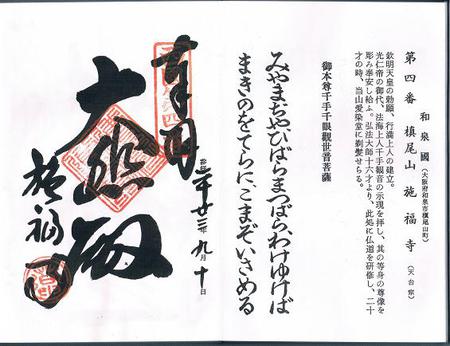 第四番 槙尾山 施福寺 (天台宗)
和泉國 (大阪府和泉市槙尾山町)
欽明天皇の勅願、行満上人の建立。
光仁帝の御代、法海上人千手観音の示現を拝し、其の等身の尊像を
彫み泰安し給ふ。弘法大師十六才より、此処に仏道を研修し、二十
才の時、当山愛染堂に剃髪せらる。
御本尊千手千眼観世音菩薩
みやまぢやひばらまつばらわけゆけば
まきのをてらに、こまぞいさめる
奉拝
大悲殿
施福寺
平成二十三年九月十日